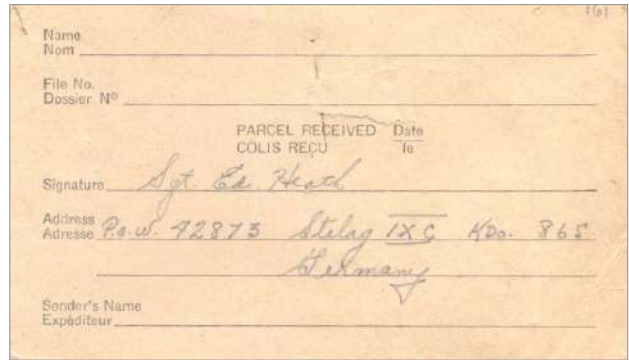 161
Name
Nom
File No.
Dossier Nº
PARCEL RECEIVED Date
COLIS REÇU le
Signature Sgt. Ed. Heath
Address
Adresse P.o.w. 42873 Stalag IXC KDo. 865
Germany
Sender's Name
Expéditeur